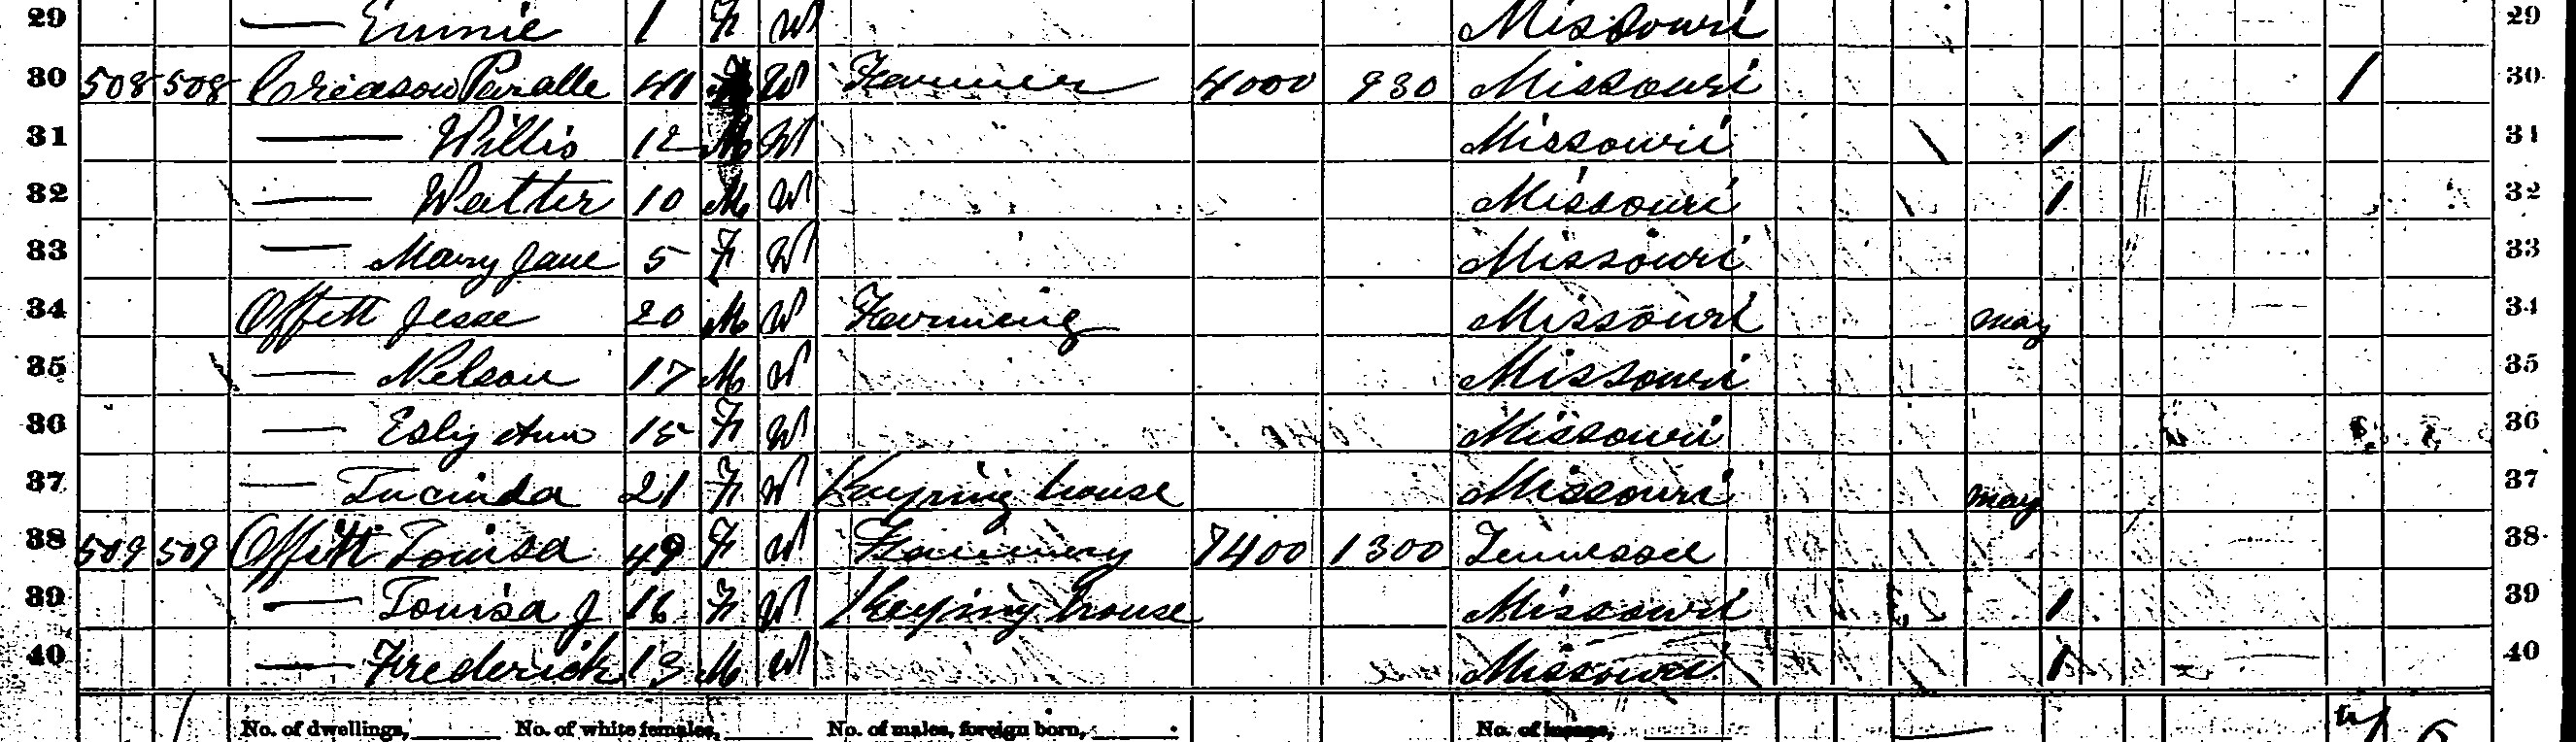 29 — Emmie 1 F W Missouri 29
30 508 508 Creason Paralle 41 W Farmer 4000 930 Missouri 1 30
31 — Willis 12 M W Missouri 1 31
32 — Walter 10 M W Missouri 1 32
33 — Mary Jane 5 F W Missouri 33
34 Offitt Jesse 20 M W Farming Missouri May 34
35 — Nelson 17 M W Missouri 35
36 — Esliy Ann 15 F W Missouri 36
37 — Lucinda 21 F W Keeping house Missouri May 37
38 509 509 Offitt Louisa 49 F W 7400 1300 Tennessee 38
39 — Louisa J 16 F W Keeping house Missouri 1 39
40 — Frederick 13 M W Missouri 1 40
No. of dwellings, No. of white females, No. of males, foreign born, No. of insane,